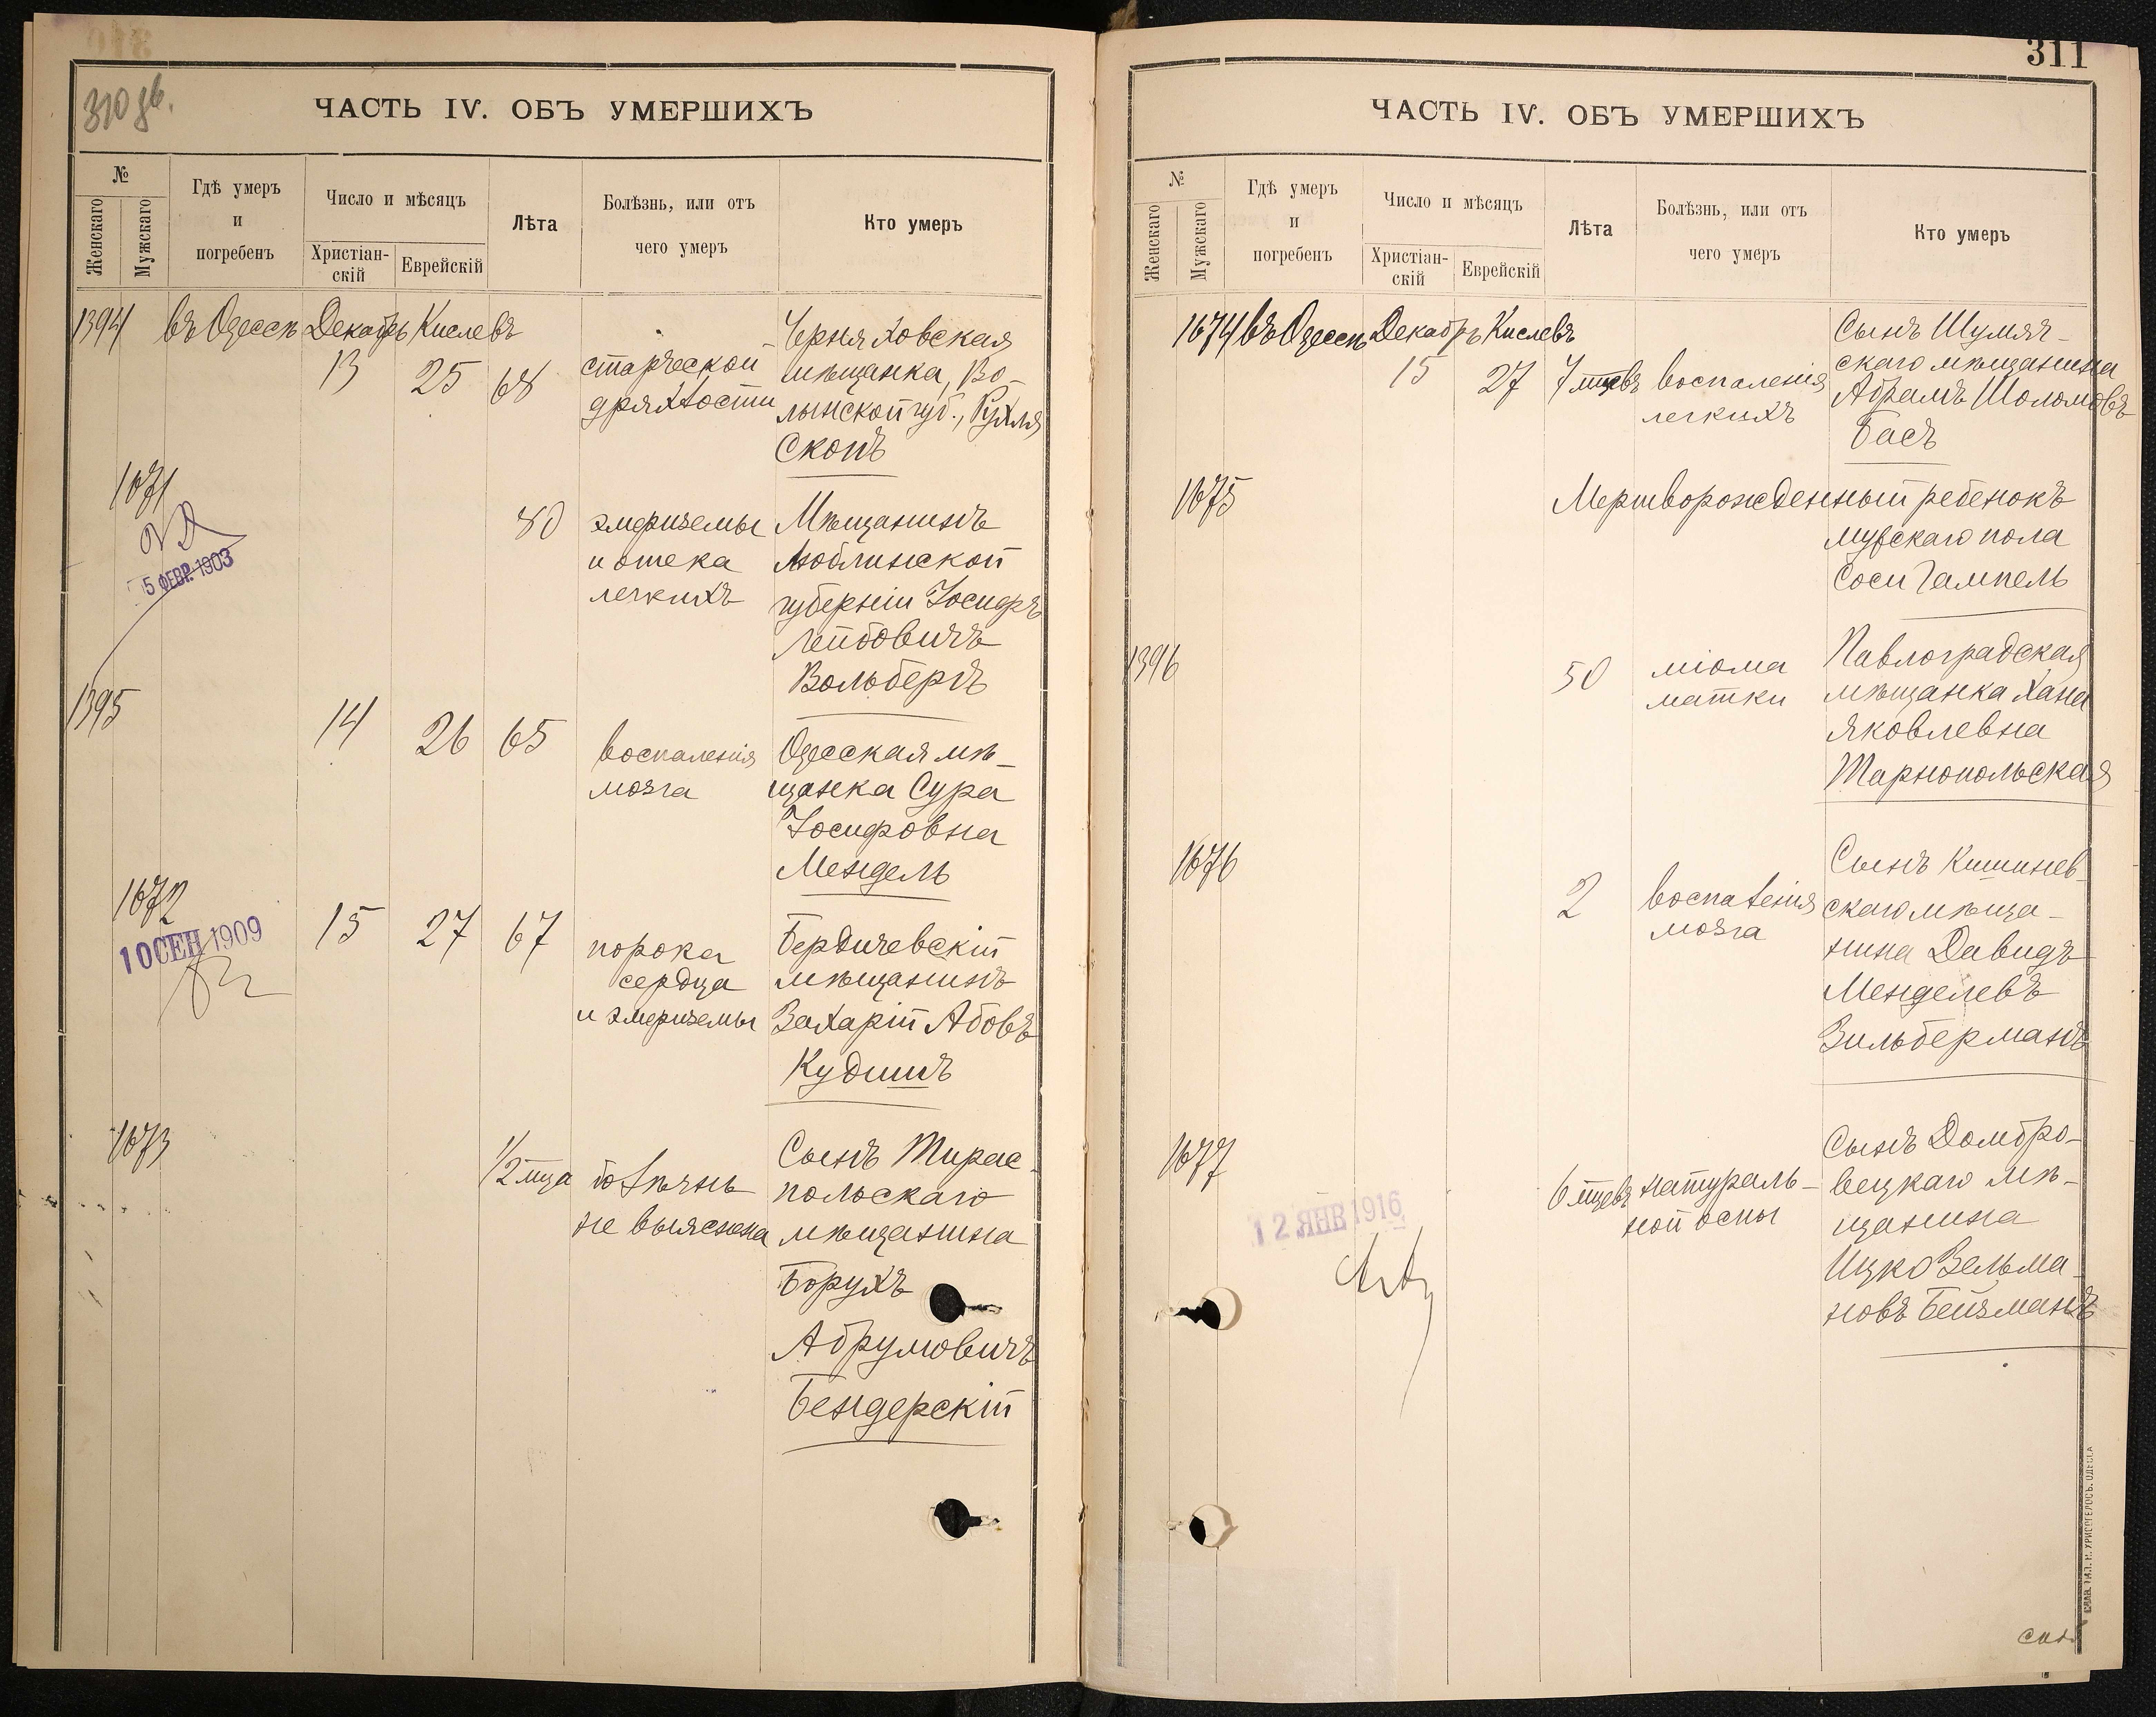 310 об.
ЧАСТЬ IV. ОБЪ УМЕРШИХЪ
№
Женскаго
Мужскаго
Гдѣ умеръ
и
погребенъ
Число и мѣсяцъ
Христіан-
скій
Еврейскій
Лѣта
Болѣзнь, или отъ
чего умеръ
Кто умеръ
1394 въ Одессѣ Декабрь Кислевъ
13 25 68
старческой
дряхлости
Черняховская
мѣщанка, Во-
лынской губ., Рухля
Скопъ
1671
5 ФЕВР. 1903
80
эмфиземы
и отека
легкихъ
Мѣщанинъ
Люблинской
губерніи Іосифъ
Лейбовичъ
Вольбергъ
1395
14 26 65
воспаленія
мозга
Одесская мѣ-
щанка Сура
Іосифовна
Мендель
1672
10 СЕН 1909
15 27 67
порока
сердца
и эмфиземы
Бердичевскій
мѣщанинъ
Захарій Абовъ
Кудишъ
1673
1/2 мца
болѣзнь
не выяснена
Сынъ Тирас-
польскаго
мѣщанина
Борухъ
Абрумовичъ
Бендерскій
311
ЧАСТЬ IV. ОБЪ УМЕРШИХЪ
№
Женскаго
Мужскаго
Гдѣ умеръ
и
погребенъ
Число и мѣсяцъ
Христіан-
скій
Еврейскій
Лѣта
Болѣзнь, или отъ
чего умеръ
Кто умеръ
1674 въ Одессѣ Декабрь Кислевъ
15 27 7 мцевъ
воспаленія
легкихъ
Сынъ Шумяч-
скаго мѣщанина
Абрамъ Шоломовъ
Басъ
1675
Мертворожденный ребенокъ
мужскаго пола
Соси Гампель
1396
50
міома
матки
Павлоградская
мѣщанка Хана
Яковлевна
Тарнопольская
1676
2
воспаленія
мозга
Сынъ Кишинев-
скаго мѣща-
нина Давидъ
Менделевъ
Зильберманъ
1677
12 ЯНВ 1916
6 мцевъ
натураль-
ной оспы
Сынъ Домбро-
вецкаго мѣ-
щанина
Ицко Зельма-
новъ Бейзманъ